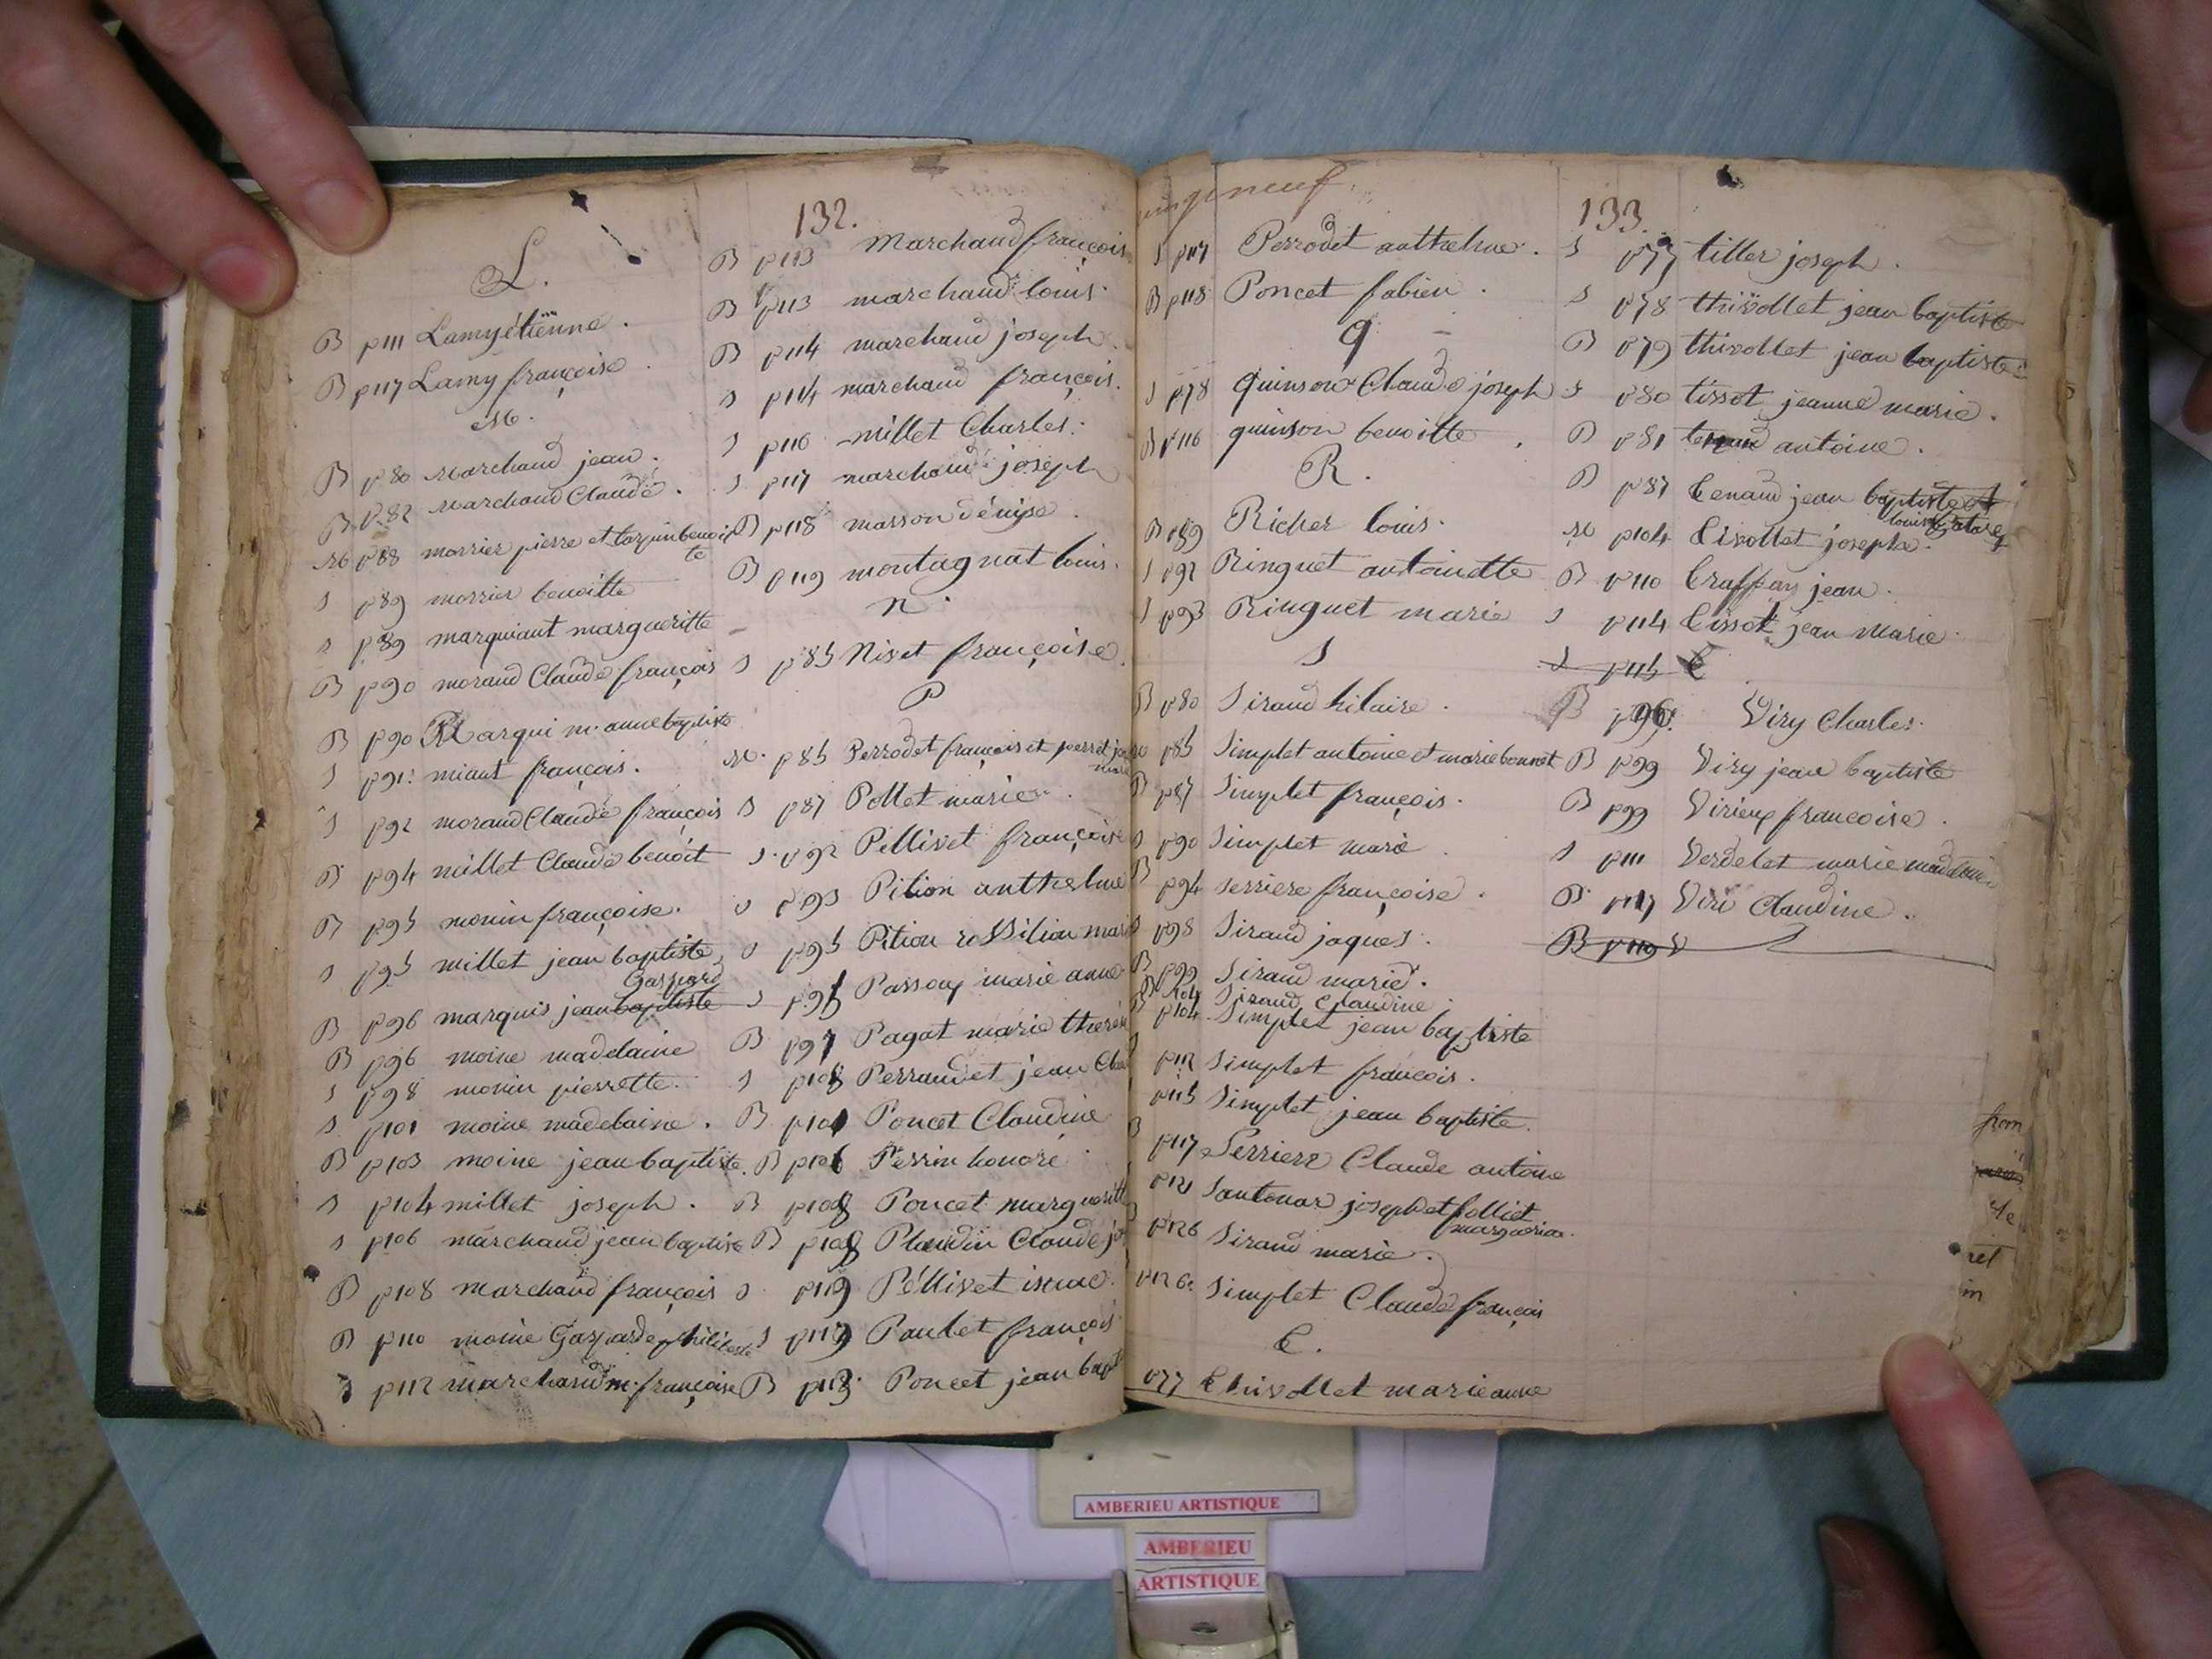 132.
L.
B p111 Lamy étienne.
B p117 Lamy françoise.
M.
B p80 Marchand jean.
B p82 Marchand Claude.
M p88 morrier pierre et torpin benoit
te
S p89 morrier benoitte
S p89 marquiant margueritte
B p90 morand Claude françois
B p90 Marqui m. anne baptiste
S p91 miant françois.
S p92 morand Claude françois
B p94 millet Claude benoit
B p95 monin françoise.
S p95 millet jean baptiste
Gaspard
B p96 marquis jean baptiste
B p96 moine madelaine
S p98 monin pierrette.
S p101 moine madelaine.
B p103 moine jean baptiste.
S p104 millet joseph.
S p106 marchand jean baptiste
B p108 marchand françois
B p110 moine Gasparde
S p112 marchand m. françoise
B p113 Marchand françois
B p113 marchand louis
B p114 marchand joseph.
S p114 marchand françois.
S p116 millet Charles.
S p117 marchand joseph
B p118 masson dénise.
B p119 montagnat louis.
n.
S p85 Nivet françoise.
P
M. p85 Perrodet françois et perret
S p87 Pollet marie.
S. p92 Pellivet françoise
S p93 Pition anthelme
S p95 Pition rossilion marie
S p95 Passoux marie anne
B p97 Pagat marie therese
S p108 Perraudet jean
B p101 Poncet Claudine
B p106 Perrin honoré
B p108 Poncet margueritte
B p108 Plaudin Claude
S p119 Péllivet
S p119 Paulet françois
B p118 Poncet jean
133.
S p117 Perrodet anthelme.
B p118 Poncet fabien.
q
S p78 quinson Claude joseph
B p116 quinson benoitte.
R.
B p89 Richer louis.
S p92 Ringuet antoinette
S p93 Ringuet marie
S
B p80 Sirand hilaire.
M p85 Simplet antoine et marie bonnet
B p87 Simplet françois.
S p90 Simplet marie
B p94 serriere françoise.
S p98 Sirand jaques.
B p99 Sirand marie.
B p104 Sirand Claudine
B p104 Simplet jean baptiste
p112 Simplet françois.
p115 Simplet jean baptiste.
B p117 Serriere Claude antoine
p121 Santonar joseph et folliet
p126 Sirand marie.
p126 Simplet Claude françois
t.
p77 thivollet marie anne
S p77 tiller joseph.
S p78 thivollet jean baptiste
B p79 thivollet jean baptiste
S p80 tissot jeanne marie.
B p81 tenand antoine.
B p87 tenand jean baptiste et
louis
M p104 tivollet joseph.
B p110 traffay jean.
S p114 tissot jean marie
S p115 t
B p96. Viry Charles.
B p99 Viry jean baptiste
B p99 Virieux francoise.
S p111 Verdelet marie madelaine
B p117 Viri Claudine.
B p119 V
AMBERIEU ARTISTIQUE
AMBERIEU
ARTISTIQUE